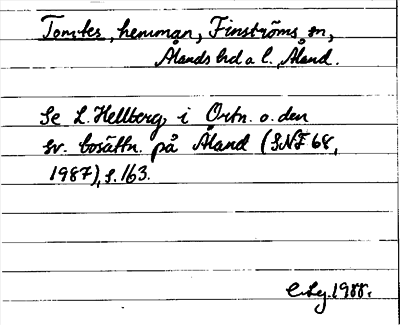 Tomtes, hemman, Finströms sn,
Ålands hd a l., Åland.
Se L. Hellberg, i Ortn. o. den
sv. bosättn. på Åland (SNF 68,
1987), s. 163.
1988.